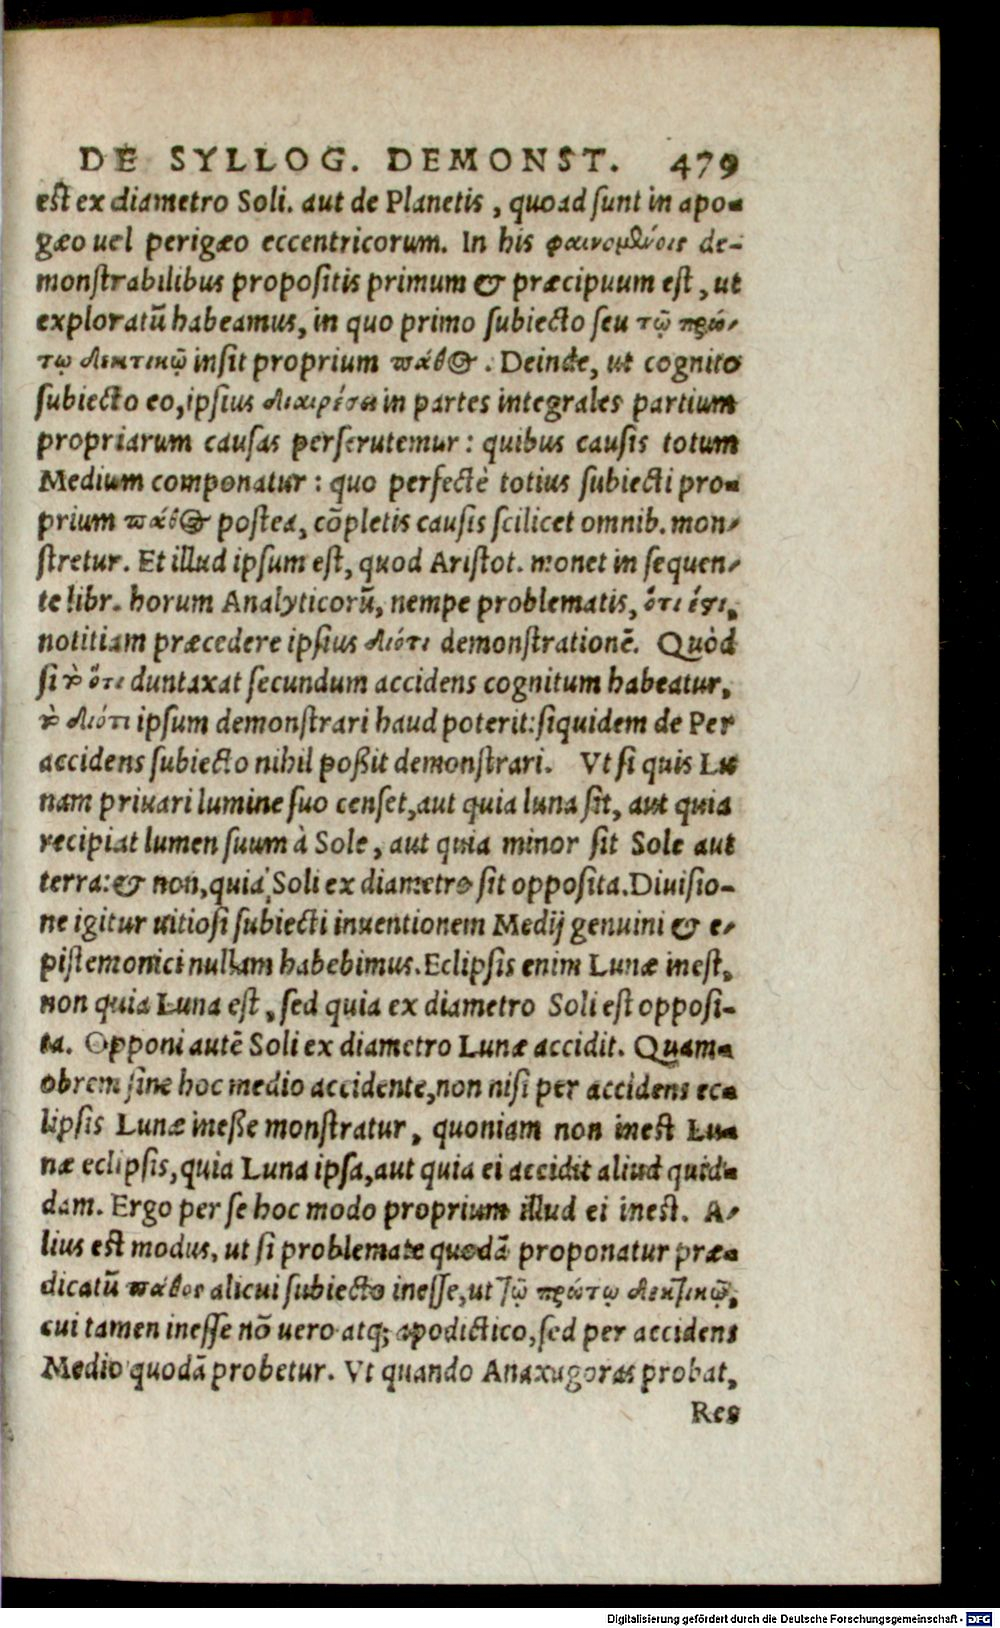 DE SYLLOG. DEMONST. 479
est ex diametro Soli. aut de Planetis, quoad sunt in apo-
gæo uel perigæo eccentricorum. In his φαινομένοις de-
monstrabilibus propositis primum & præcipuum est, ut
exploratū habeamus, in quo primo subiecto seu τῷ πρώ-
τῳ δεκτικῷ insit proprium πάθος. Deinde, ut cognito
subiecto eo, ipsius διαιρέσει in partes integrales partium
propriarum causas perscrutemur: quibus causis totum
Medium componatur: quo perfectè totius subiecti pro-
prium πάθος postea, cōpletis causis scilicet omnib. mon-
stretur. Et illud ipsum est, quod Aristot. monet in sequen-
te libr. horum Analyticorū, nempe problematis, ὅτι ἐςι,
notitiam præcedere ipsius διότι demonstrationē. Quòd
si τὸ ὅτι duntaxat secundum accidens cognitum habeatur,
τὸ διότι ipsum demonstrari haud poterit: siquidem de Per
accidens subiecto nihil poßit demonstrari. Vt si quis Lu
nam priuari lumine suo censet, aut quia luna sit, aut quia
recipiat lumen suum à Sole, aut quia minor sit Sole aut
terra: & non, quia Soli ex diametro sit opposita. Diuisio-
ne igitur uitiosi subiecti inuentionem Medij genuini & e-
pistemonici nullam habebimus. Eclipsis enim Lunæ inest,
non quia Luna est, sed quia ex diametro Soli est opposi-
ta. Opponi autē Soli ex diametro Lunæ accidit. Quam-
obrem sine hoc medio accidente, non nisi per accidens ec-
lipsis Lunæ ineße monstratur, quoniam non inest Lu-
næ eclipsis, quia Luna ipsa, aut quia ei accidit aliud quid-
dam. Ergo per se hoc modo proprium illud ei inest. A-
lius est modus, ut si problemate quodā proponatur præ-
dicatū πάθος alicui subiecto inesse, ut τῷ πρώτῳ δεκτικῷ,
cui tamen inesse nō uero atq; apodictico, sed per accidens
Medio quodā probetur. Vt quando Anaxagoras probat,
Res
Digitalisierung gefördert durch die Deutsche Forschungsgemeinschaft - DFG